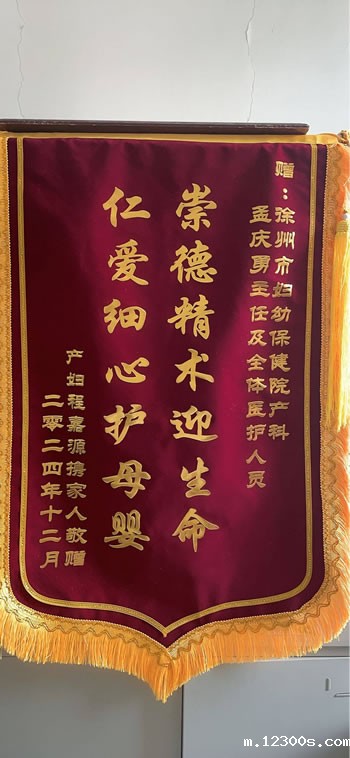 赠：徐州市妇幼保健院产科
孟庆勇主任及全体医护人员
崇德精术迎生命
仁爱细心护母婴
产妇程嘉源携家人敬赠
二零二四年十二月
m.12300s.com